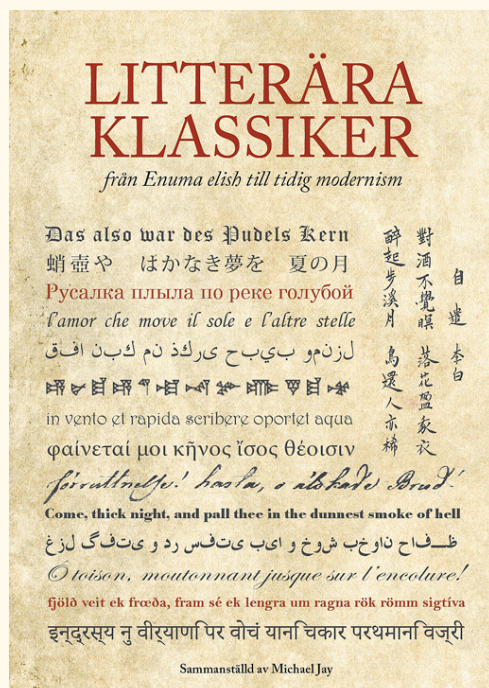 LITTERÄRA
KLASSIKER
från Enuma elish till tidig modernism
Das also war des Pudels Kern
蛸壺や はかなき夢を 夏の月
Русалка плыла по реке голубой
l'amor che move il sole e l'altre stelle
افق كبن نم ىركذ بيبح لزنمو
in vento et rapida scribere oportet aqua
φαίνεταί μοι κῆνος ἴσος θέοισιν
förruttnelse! hasta, o älskade Brud!
Come, thick night, and pall thee in the dunnest smoke of hell
لزغ یتفگ و رد یتفس ایب و شوخ ناوخب ظفاح
O toison, moutonnant jusque sur l'encolure!
fjölð veit ek frœða, fram sé ek lengra um ragna rök römm sigtíva
इन्द्रस्य नु वीर्याण पिर वोचं यान चिकार परथमान विज्री
自遣 李白
對酒不覺暝 落花盈我衣
醉起步溪月 鳥還人亦稀
Sammanställd av Michael Jay